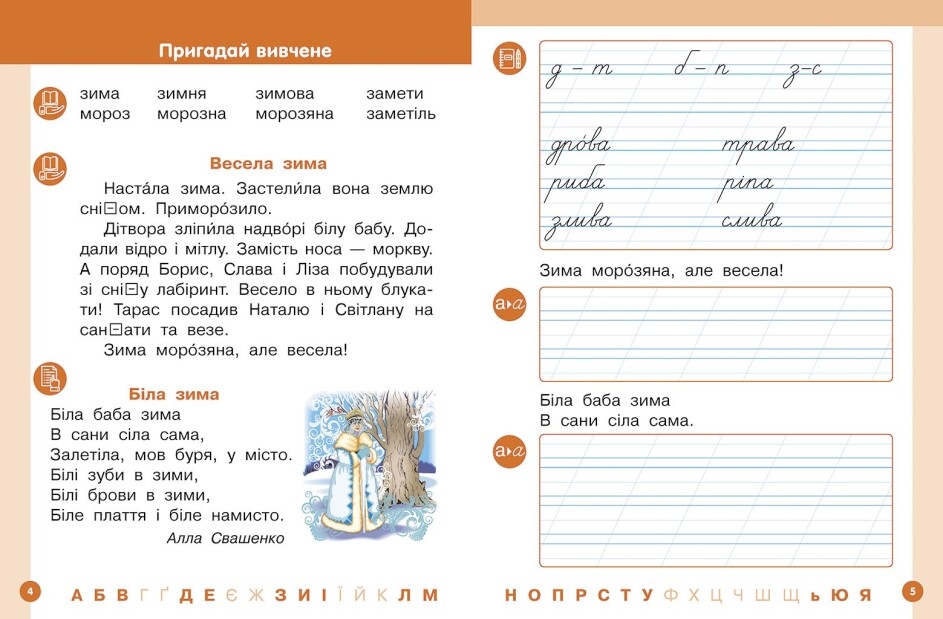 Пригадай вивчене
зима зимня зимова замети
мороз морозна морозяна заметіль
Весела зима
Наста́ла зима. Застели́ла вона землю
сні[–]ом. Приморо́зило.
Дітвора зліпи́ла надво́рі білу бабу. До-
дали відро і мітлу. Замість носа — моркву.
А поряд Борис, Слава і Ліза побудували
зі сні[–]у лабіринт. Весело в ньому блука-
ти! Тарас посадив Наталю і Світлану на
сан[–]ати та везе.
Зима моро́зяна, але весела!
Біла зима
Біла баба зима
В сани сіла сама,
Залетіла, мов буря, у місто.
Білі зуби в зими,
Білі брови в зими,
Біле плаття і біле намисто.
Алла Свашенко
4 А Б В Г Ґ Д Е Є Ж З И І Ї Й К Л М
д – т б – п з–с
дро́ва трава
риба ріпа
злива слива
Зима моро́зяна, але весела!
а а
Біла баба зима
В сани сіла сама.
а а
Н О П Р С Т У Ф Х Ц Ч Ш Щ ь Ю Я 5